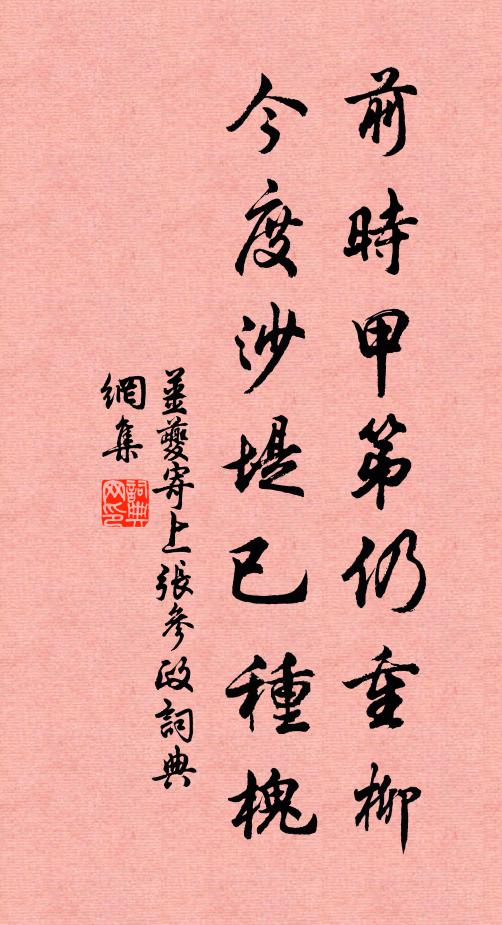 前時甲第仍垂柳
今度沙堤已種槐
姜夔寄上張參政詞典
網集
詞典網印